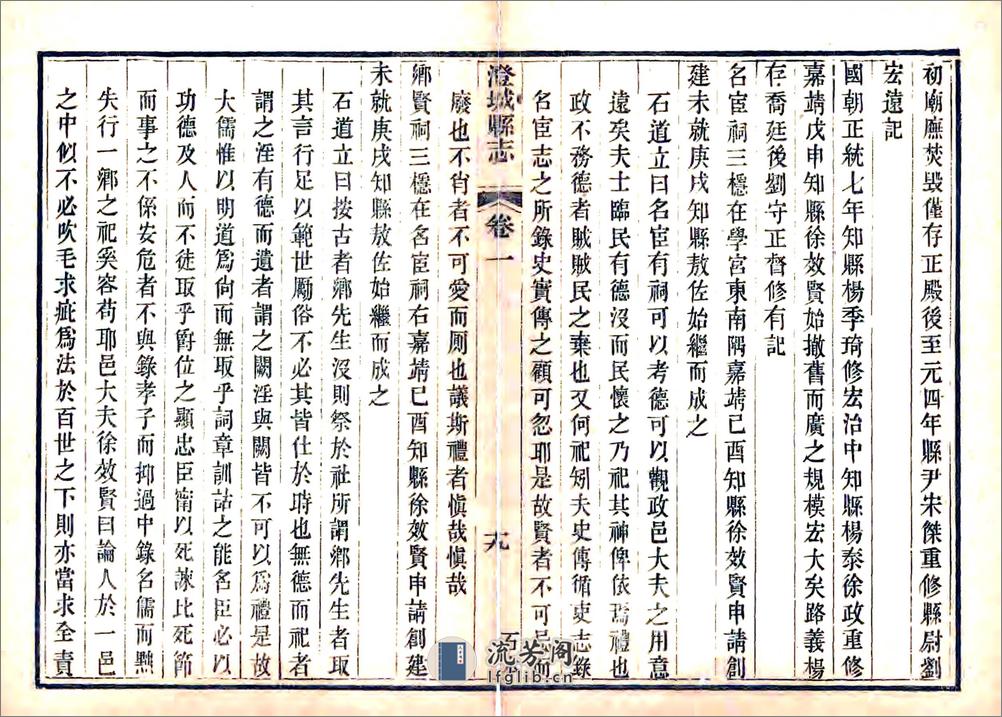 初廟廡焚毀僅存正殿後至元四年縣尹朱傑重修縣尉劉
宏遠記
國朝正統七年知縣楊季琦修宏治中知縣楊泰徐政重修
嘉靖戊申知縣徐效賢始撤舊而廣之規模宏大矣路義楊
存喬廷後劉守正督修有記
名宦祠三楹在學宮東南隅嘉靖己酉知縣徐效賢申請創
建未就庚戌知縣敖佐始繼而成之
石道立曰名宦有祠可以考德可以觀政邑大夫之用意
遠矣夫士臨民有德沒而民懷之乃祀其神俾依焉禮也
政不務德者賊賊民之棄也又何祀矧夫史傳循吏志錄
名宦志之所錄史實傳之顧可忽耶是故賢者不可忌而
澄城縣志
卷一
十九
廢也不肖者不可愛而厠也議斯禮者愼哉愼哉
鄉賢祠三楹在名宦祠右嘉靖己酉知縣徐效賢申請創建
未就庚戌知縣敖佐始繼而成之
石道立曰按古者鄉先生沒則祭於社所謂鄉先生者取
其言行足以範世厲俗不必其皆仕於時也無德而祀者
謂之淫有德而遺者謂之闕淫與闕皆不可以爲禮是故
大儒惟以明道爲尙而無取乎詞章訓詁之能名臣必以
功德及人而不徒取乎爵位之顯忠臣甯以死諫比死節
而事之不係安危者不與錄孝子而抑過中錄名儒而黜
失行一鄉之祀奚容苟耶邑大夫徐效賢曰論人於一邑
之中似不必吹毛求疵爲法於百世之下則亦當求全責
流芳阁
lfglib.cn